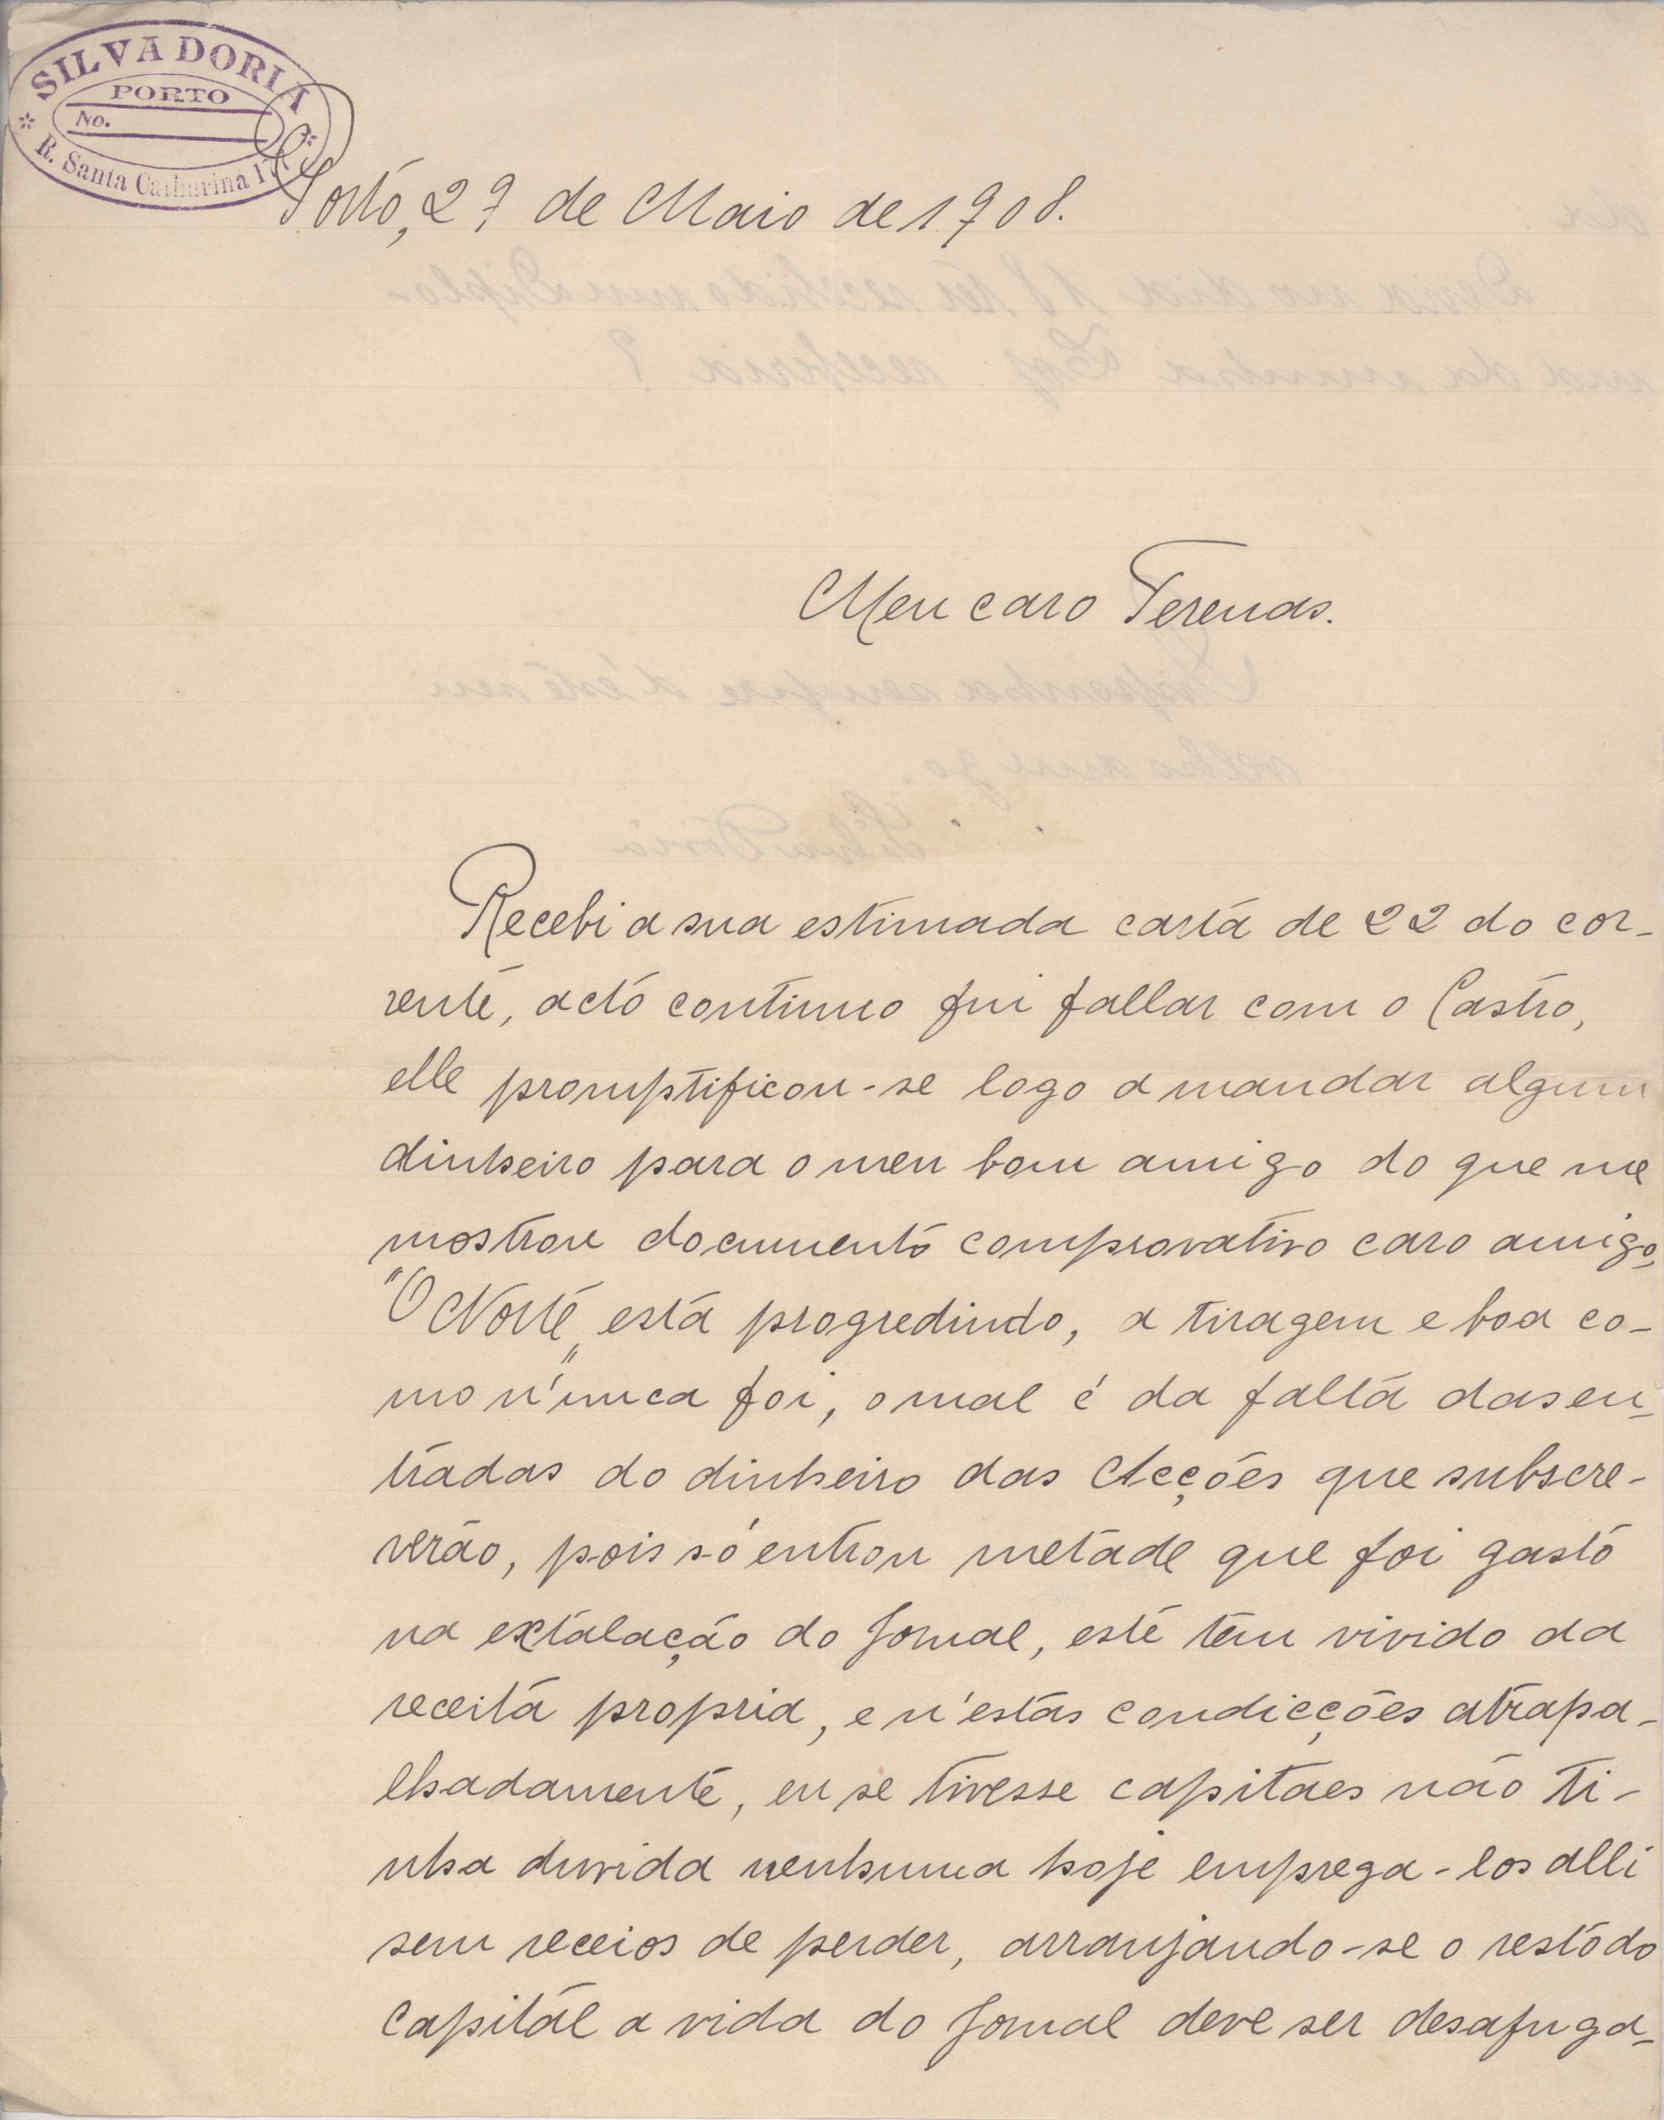 SILVA DORIA
PORTO
No.
R. Santa Catharina
Porto, 27 de Maio de 1908.
Meu caro Terenas.
Recebi a sua estimada carta de 22 do cor-
rente, acto continuo fui fallar com o Castro,
elle promptificou-se logo a mandar algum
dinheiro para o meu bom amigo do que me
mostrou documento comprovativo caro amigo,
"O Norte„ está progredindo, a tiragem e boa co-
mo n'unca foi, o mal é da falta das en-
tradas do dinheiro das Acções que subscre-
verão, pois só entrou metade que foi gasto
na extalação do Jornal, este tem vivido da
receita propria, e n'estas condicções atrapa-
lhadamente, eu se tivesse capitaes não ti-
nha duvida nenhuma hoje emprega-los alli
sem receios de perder, arranjando-se o resto do
capital a vida do Jornal deve ser desafuga-